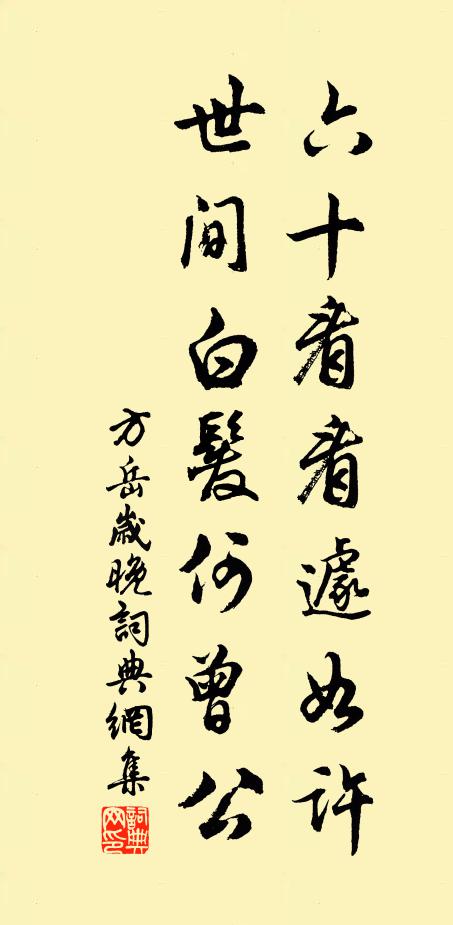 六十看看遽如许
世间白髮何曾公
方岳歲晚詞典網集
詞典网印